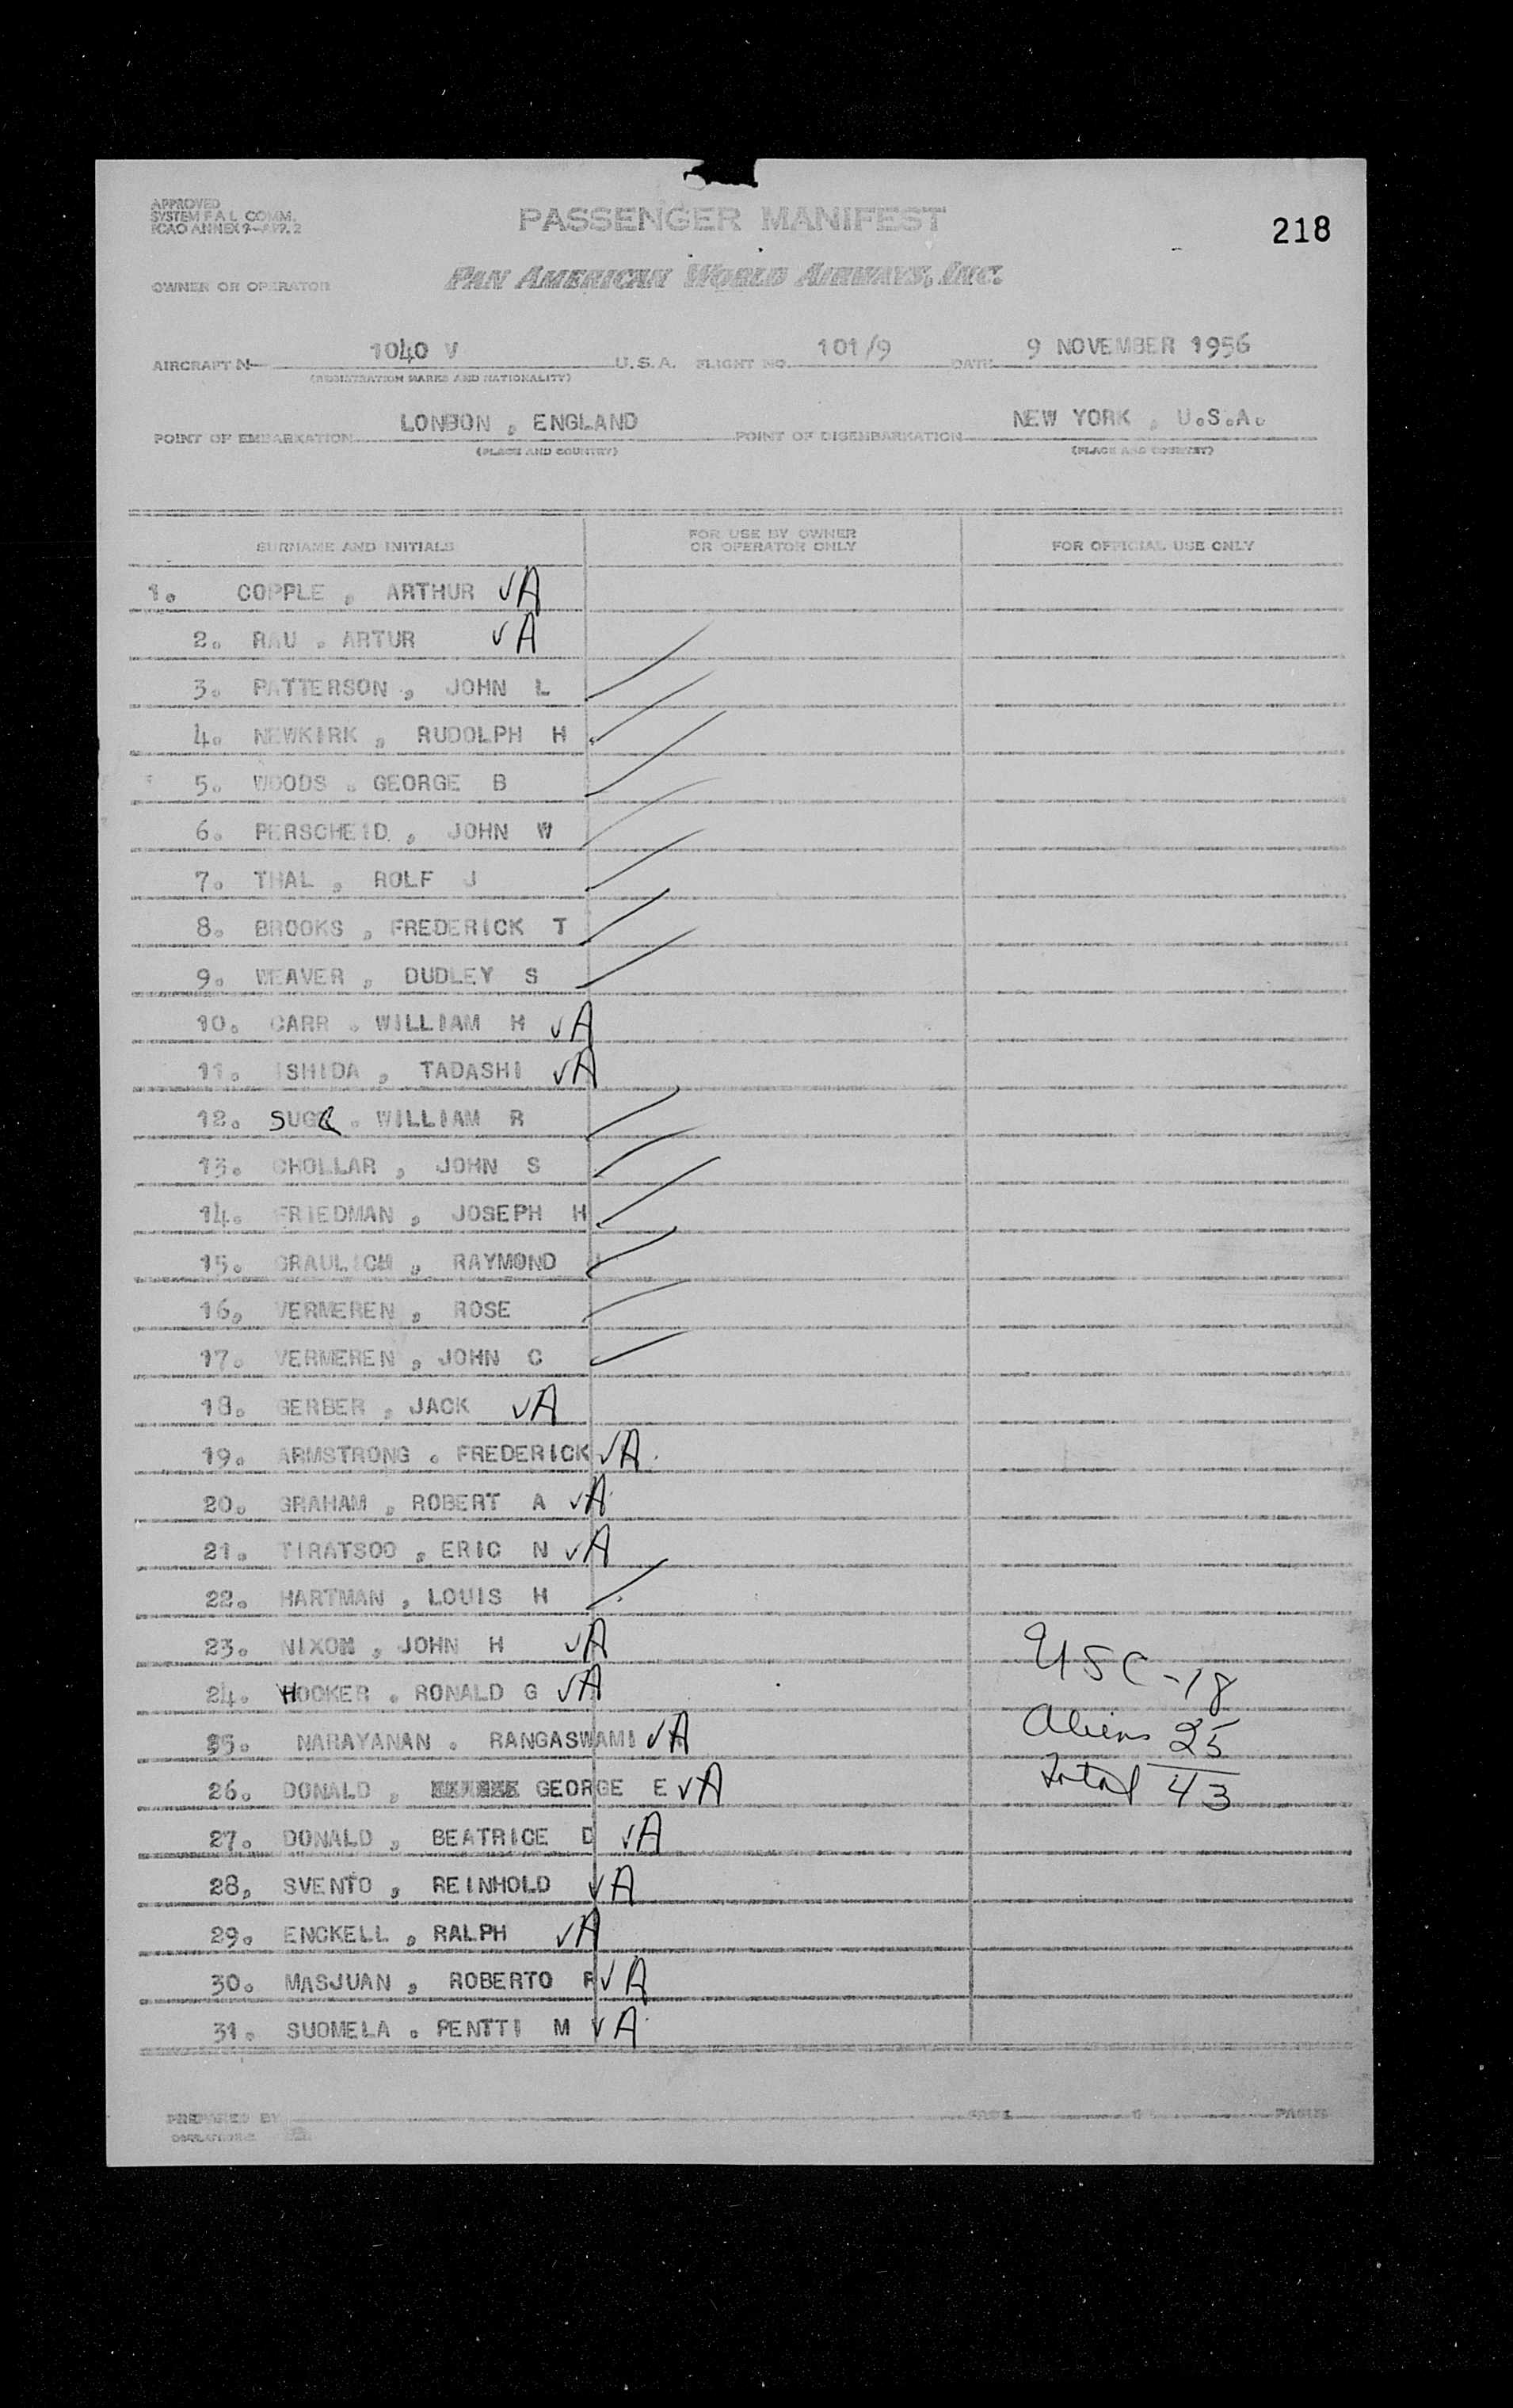 APPROVED
SYSTEM F A L COMM.
ICAO ANNEX 9-APP. 2
PASSENGER MANIFEST
218
OWNER OR OPERATOR
PAN AMERICAN WORLD AIRWAYS, INC.
AIRCRAFT N 1040 V U.S.A. FLIGHT NO. 101/9 DATE 9 NOVEMBER 1956
(REGISTRATION MARKS AND NATIONALITY)
POINT OF EMBARKATION LONDON , ENGLAND POINT OF DISEMBARKATION NEW YORK , U.S.A.
(PLACE AND COUNTRY) (PLACE AND COUNTRY)
SURNAME AND INITIALS FOR USE BY OWNER OR OPERATOR ONLY FOR OFFICIAL USE ONLY
1. COPPLE , ARTHUR √A
2. RAU . ARTUR √A
3. PATTERSON , JOHN L
4. NEWKIRK , RUDOLPH H
5. WOODS . GEORGE B
6. PERSCHEID , JOHN W
7. THAL , ROLF J
8. BROOKS , FREDERICK T
9. WEAVER , DUDLEY S
10. CARR . WILLIAM H √A
11. ISHIDA , TADASHI √A
12. . WILLIAM R
13. CHOLLAR , JOHN S
14. FRIEDMAN , JOSEPH H
15. GRAULICH , RAYMOND
16, VERMEREN , ROSE
17. VERMEREN , JOHN C
18. GERBER , JACK √A
19. ARMSTRONG . FREDERICK √A
20. GRAHAM , ROBERT A √A
21. TIRATSOO , ERIC N √A
22. HARTMAN , LOUIS H
23. NIXON , JOHN H √A
24. HOOKER . RONALD G √A
25. NARAYANAN . RANGASWAMI √A
26. DONALD , GEORGE E √A
27. DONALD , BEATRICE D √A
28, SVENTO , REINHOLD √A
29. ENCKELL , RALPH √A
30. MASJUAN , ROBERTO √A
31. SUOMELA . PENTTI M √A
USC - 18
Aliens 25
Total 43
PREPARED BY PAGE PAGES